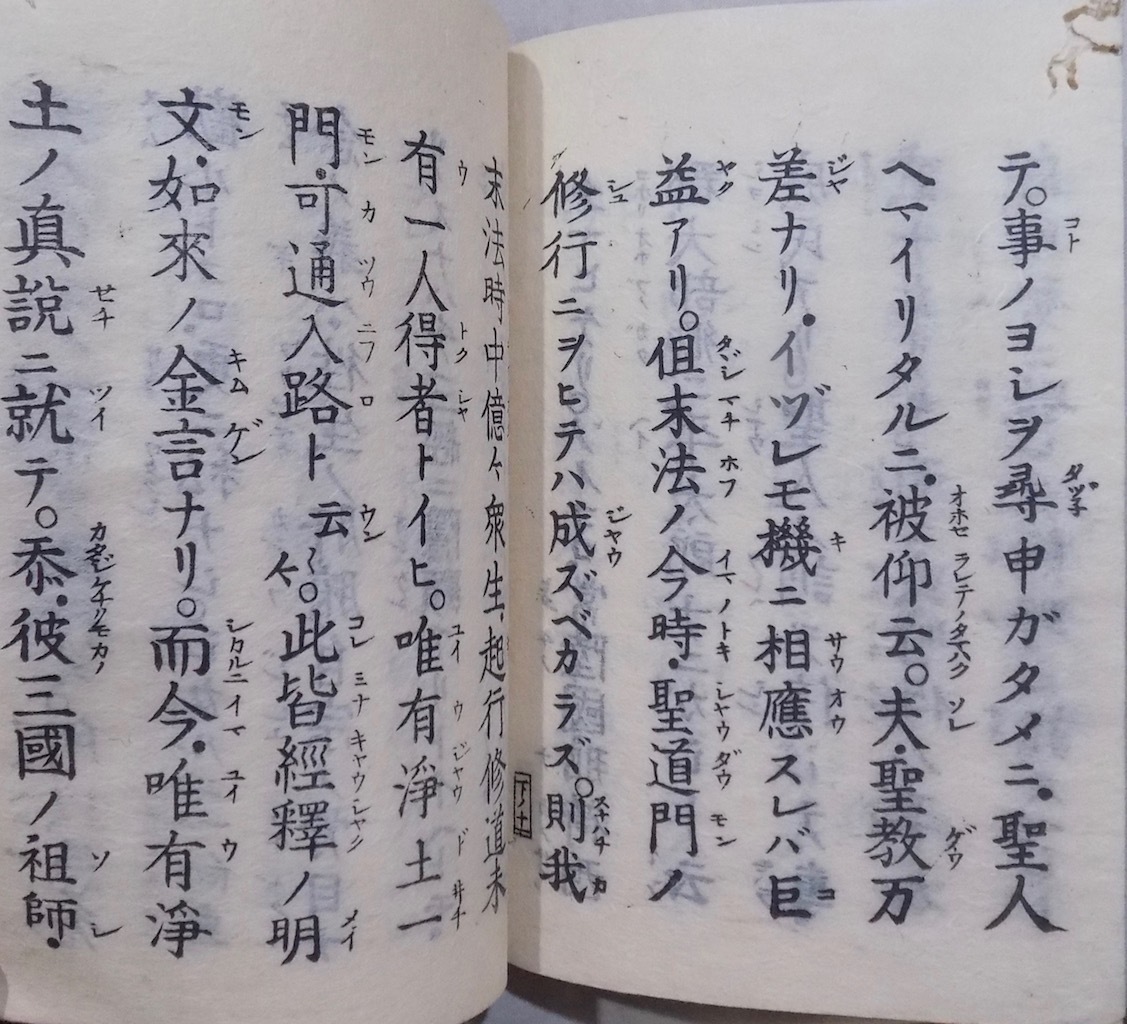 テ。事ノヨシヲ尋申ガタメニ。聖人
ヘマイリタルニ。被仰云。夫・聖教万
差ナリ。イヅレモ機ニ相應スレバ巨
益アリ。但末法ノ今時・聖道門ノ
修行ニヲヒテハ成ズベカラズ。則我
末法時中億々衆生、起行修道未
有一人得者トイヒ。唯有淨土一
門・可通入路ト云〻。此皆經釋ノ明
文・如來ノ金言ナリ。而今・唯有淨
土ノ真說ニ就テ。忝・彼三國ノ祖師・
下ノ十